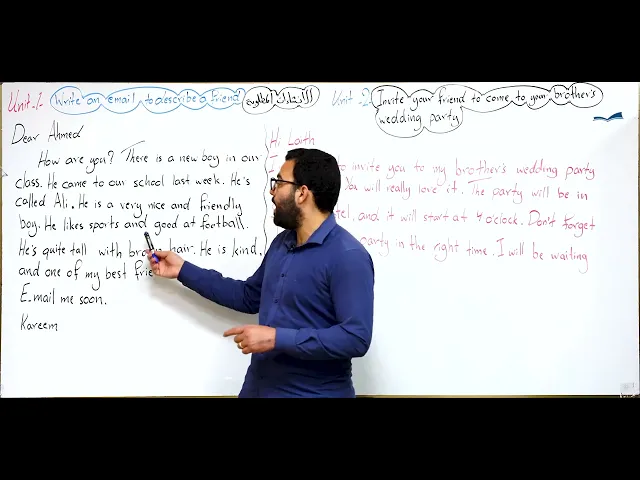 Unit -1-
Write an email to describe a friend
Unit -2-
Invite your friend to come to your brother's
wedding party
Dear Ahmed
How are you? There is a new boy in our
class. He came to our school last week. He's
called Ali. He is a very nice and friendly
boy. He likes sports and good at football.
He's quite tall with brown hair. He is kind.
and one of my best frie
E.mail me soon.
Kareem
Hi Laith
I
to invite you to my brother's wedding party
You will really love it. The party will be in
tel. and it will start at 4 o'clock. Don't forget
party in the right time. I will be waiting